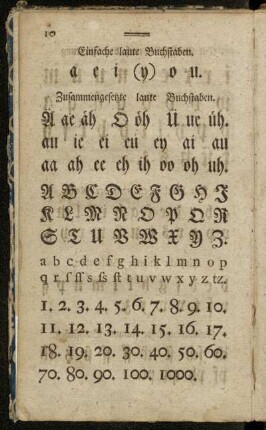 10
Einfache laute Buchstaben.
a e i (y) o u.
Zusammengesetzte laute Buchstaben.
Ä ae äh Ö öh Ü ue üh.
au ie ei eu ey ai au
aa ah ee eh ih oo oh uh.
A B C D E F G H I
K L M N O P Q R
S T U V W X Y Z.
a b c d e f g h i k l m n o p
q r ſ ſſ s ſs ſt t u v w x y z tz.
1. 2. 3. 4. 5. 6. 7. 8. 9. 10.
11. 12. 13. 14. 15. 16. 17.
18. 19. 20. 30. 40. 50. 60.
70. 80. 90. 100. 1000.